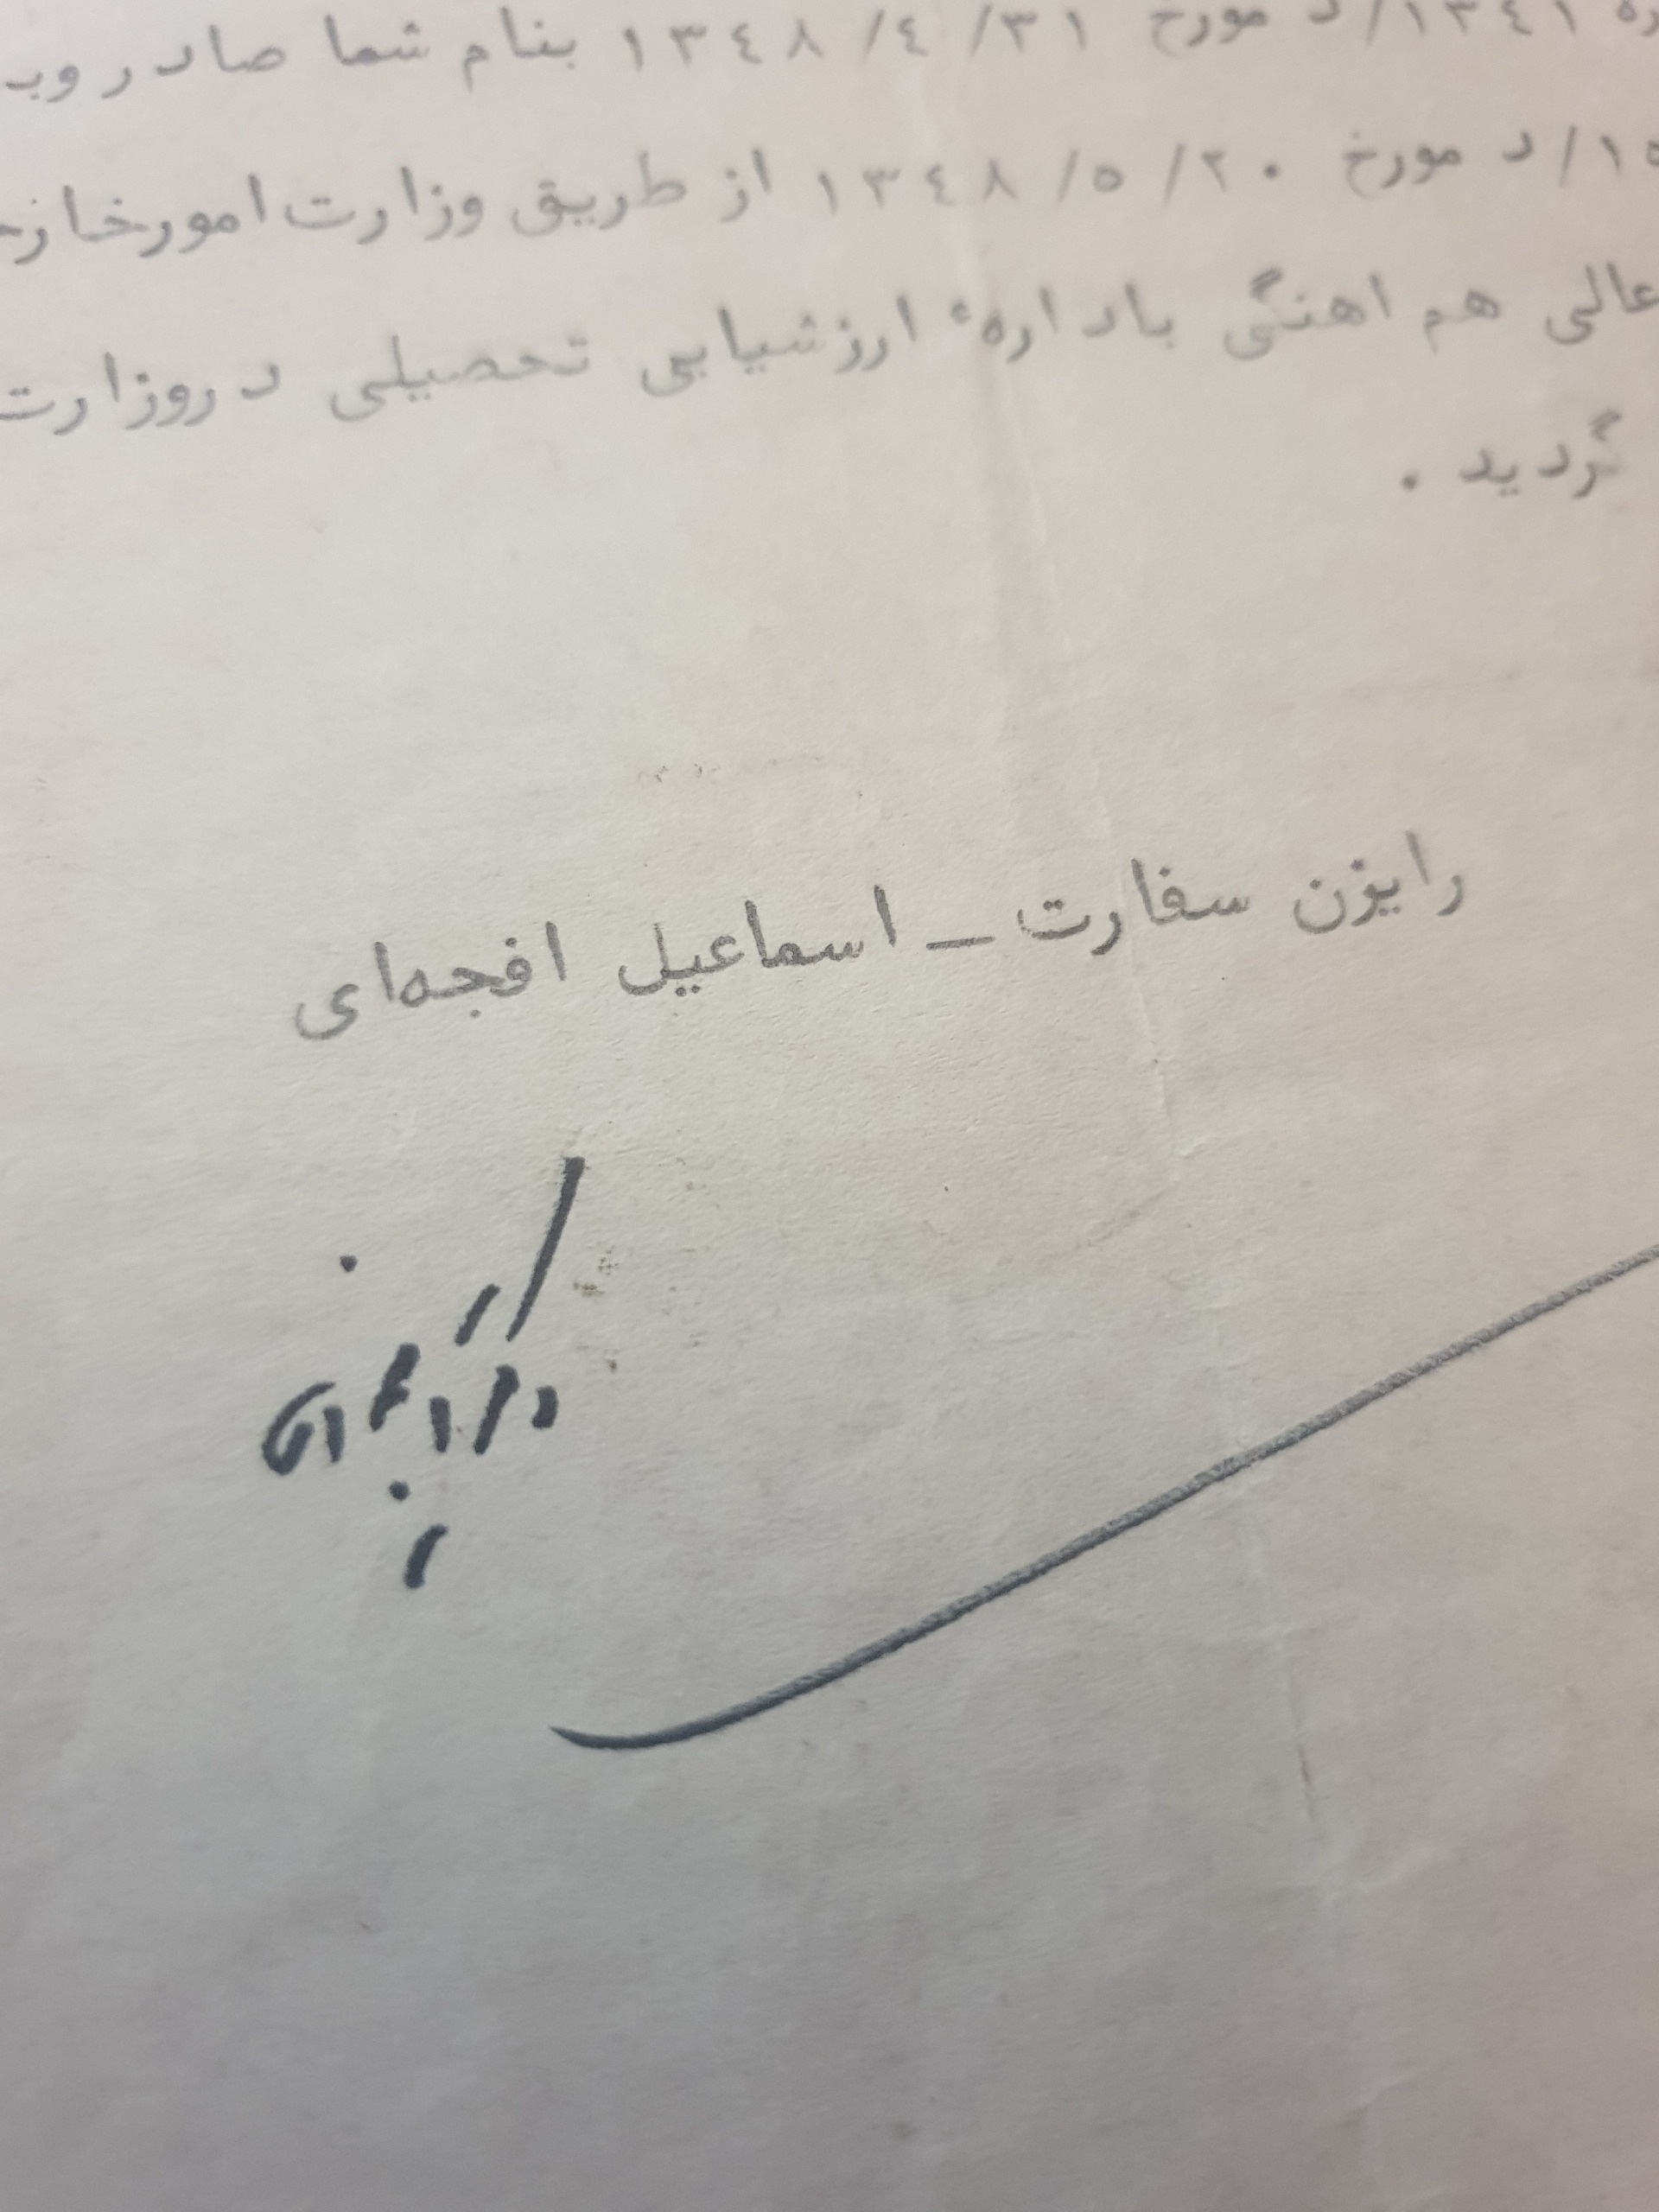 ١٣٤١/د مورخ ٣١/ ٤/ ١٣٤٨ بنام شما صادر وبـ
/د مورخ ٢٠/ ٥/ ١٣٤٨ از طریق وزارت امورخارجـ
عالی هم اهنگی باداره ارزشیابی تحصیلی دروزارت
گردید .
رایزن سفارت ـ اسماعیل افجه‌ای